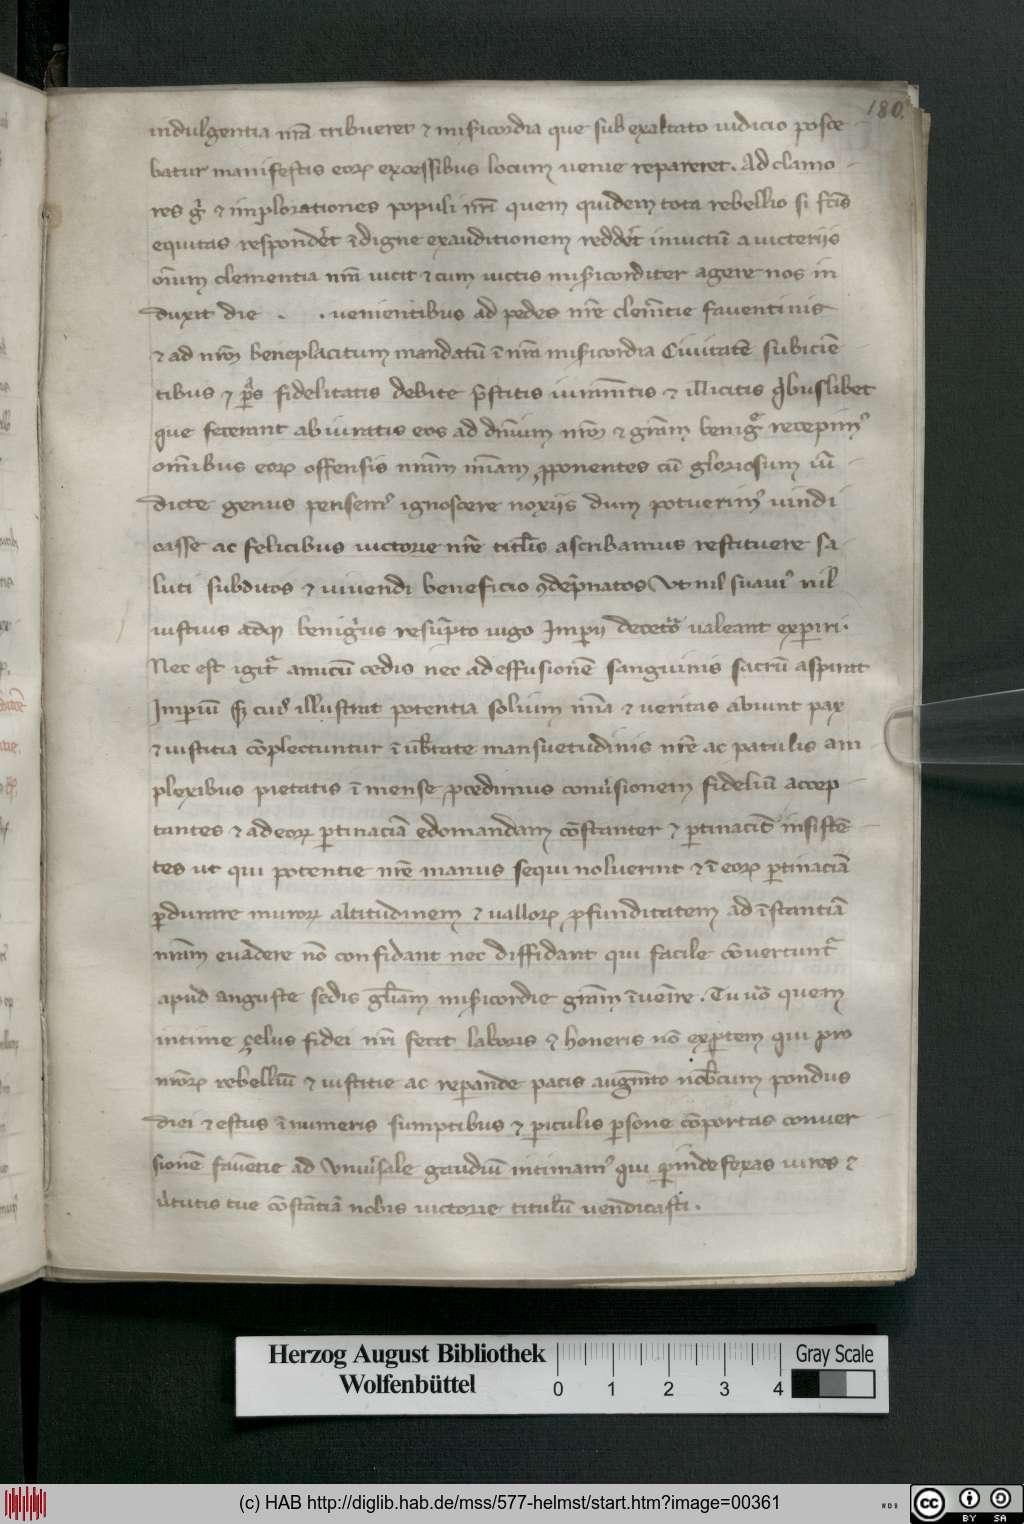 180.
indulgentia nr̄a tribueret ⁊ misericordia que sub exaltato iudicio posce
batur manifestis eorꝝ excessibus locum uenie repareret. Ad clamo
res gͥ ⁊ implorationes populi nr̄i quem quidem tota rebellio si sc̄is
equitas respondēt īdigne exauditionem reddēt inuictū a uicteriis
oīum clementia nr̄a uicit ⁊ cum uictis mis̄icorditer agere nos in
duxit die . . uenientibus ad pedes nr̄e clem̄tie fauentinis
⁊ ad nr̄m beneplacitum mandatū ī nr̄a misericordia Ciuitatē subiciē
tibus ⁊ fidelitatis debite p̄stitis iuram̄tis ⁊ illicitis qͥbuslibet
que fecerant abiuratis eos ad dn̄ium nr̄m ⁊ gr̄am recepimꝰ
om̄ibus eorꝝ offensis nr̄am ꝓponentes cū gloriosum iū
dicte genus pensemꝰ ignoscere noxiis dum potuerimꝰ uindi
casse ac felicibus uictorie nr̄e titl̄is ascribamus restituere sa
luti subditos ⁊ uiuendi beneficio ꝯdēpnatos Vt nil suauiꝰ nil
iustius adqꝫ benigͥus resūpto iugo Imperii valeant experiri.
Nec est igitᷣ amicū cedis nec ad effusionē sanguinis sacrū aspirat
Imperiū Sꝫ cuiꝰ illustrat potentia solium mīa ⁊ ueritas abiunt pax
⁊ iustitia cōplectuntur ī ub̄tate mansuetudinis nr̄e ac patulis am
plexibus pietatis ī mense ꝓcedimus conūsionem fideliū accep
tantes ⁊ ad eorꝝ ꝑtinaciā edomandam cōstanter ⁊ ꝑtinacit̄ insistē
tes ut qui potentie nr̄e manus sequi noluerint ⁊ ī eorꝝ ꝑtinaciā
ꝑdurare murorꝝ altitudinem ⁊ uallorꝝ ꝓfunditatem ad īstantiā
nr̄am euadere nō confidant nec diffidant qui facile cōuertuntᷣ
apud anguste sedis gl̄iam mis̄icordie gr̄am īuenīre. Tu uō quem
intime çelus fidei nr̄i fecit laboris ⁊ honeris nō exꝑtem qui pro
nr̄orꝝ rebelliū ⁊ iustitie ac reparande pacis augm̄to nob̄cum pondus
diei ⁊ estus īnumeris sumptibus ⁊ ꝑiculis ꝑsone cōportas conuer
sionē fauētie ad vniūsale gaudiū intimamꝰ qui ꝑinde fexas uires ⁊
ūtutis tue cōstātiā nobis uictorie titulū uendicasti.
Herzog August Bibliothek
Wolfenbüttel
0 1 2 3 4
Gray Scale
(c) HAB http://diglib.hab.de/mss/577-helmst/start.htm?image=00361
WDB
cc BY SA